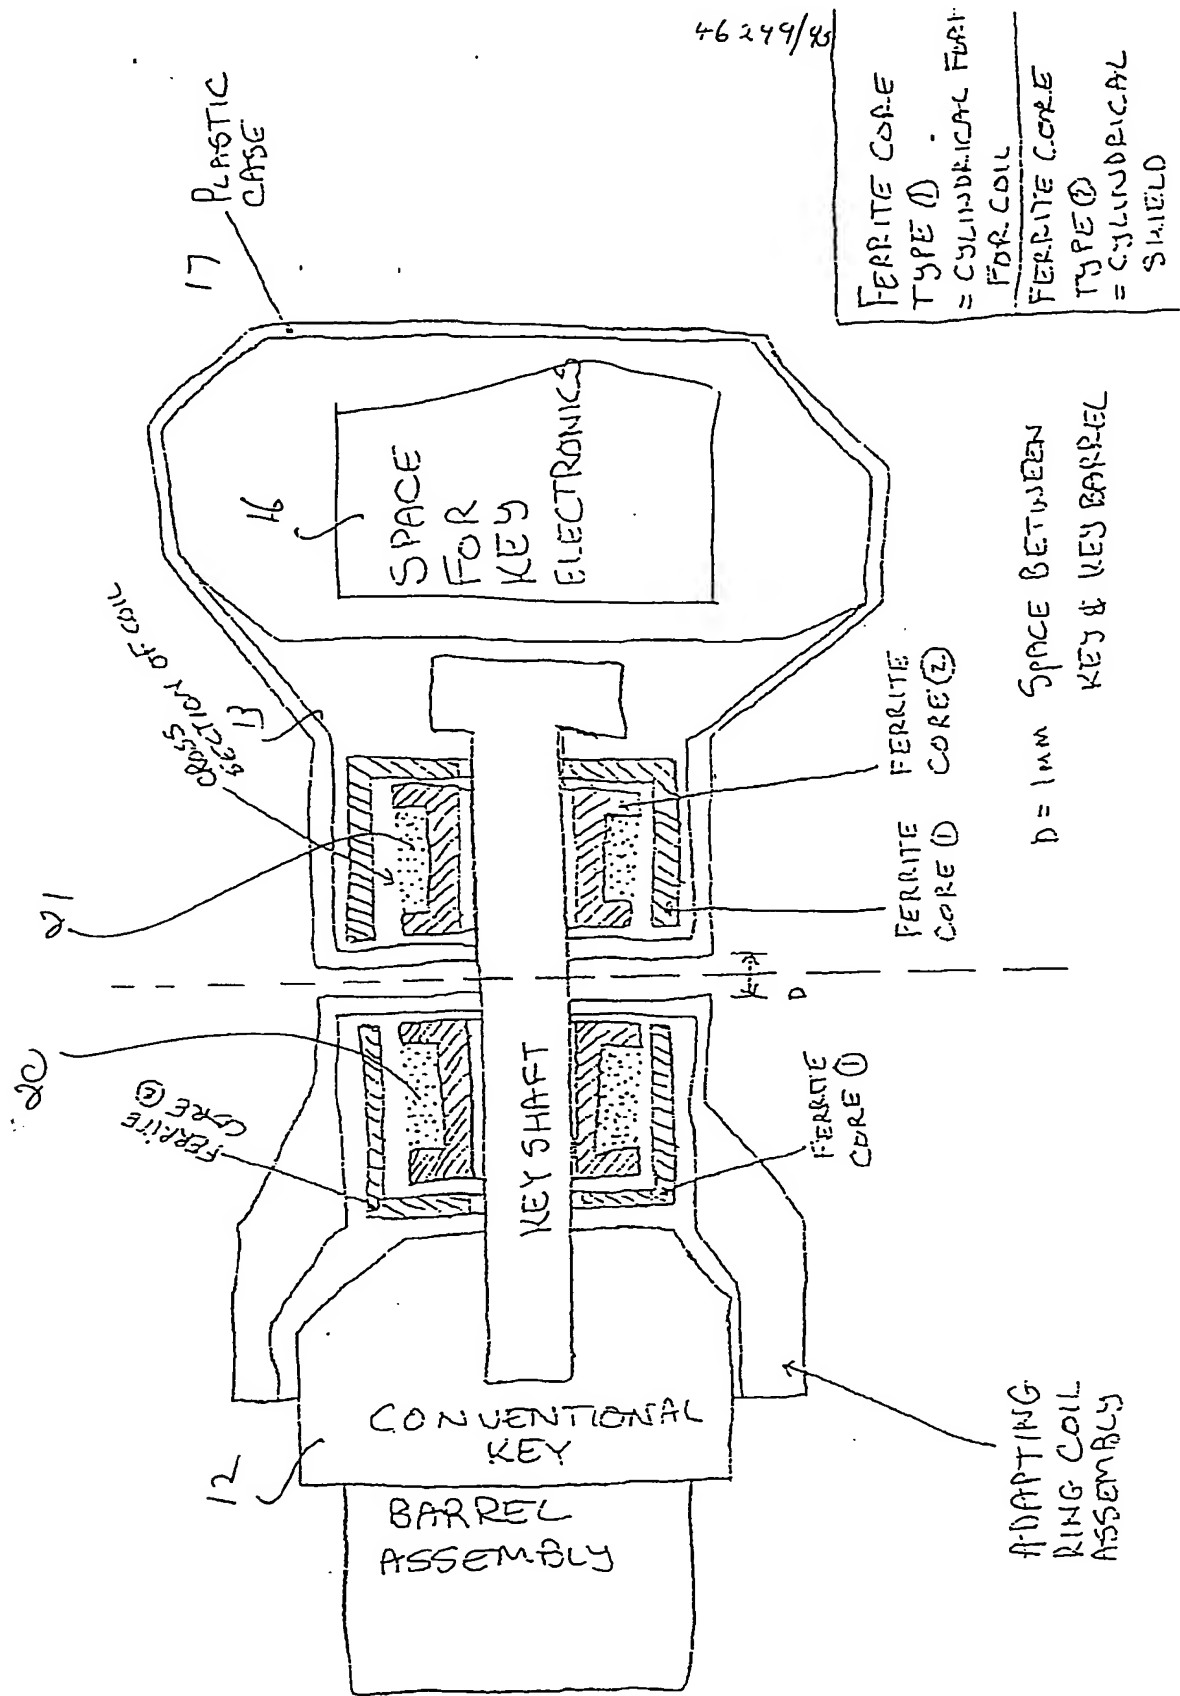 46299/95
FERRITE CORE
TYPE ①
= CYLINDRICAL FORM
FOR COIL
FERRITE CORE
TYPE ②
= CYLINDRICAL
SHIELD
17
PLASTIC
CASE
16
SPACE
FOR
KEY
ELECTRONICS
CROSS
SECTION OF COIL
13
21
FERRITE
CORE ②
FERRITE
CORE ①
D = 1MM SPACE BETWEEN
KEY & KEY BARREL
D
20
FERRITE
CORE ②
KEY SHAFT
FERRITE
CORE ①
12
CONVENTIONAL
KEY
BARREL
ASSEMBLY
ADAPTING
RING COIL
ASSEMBLY